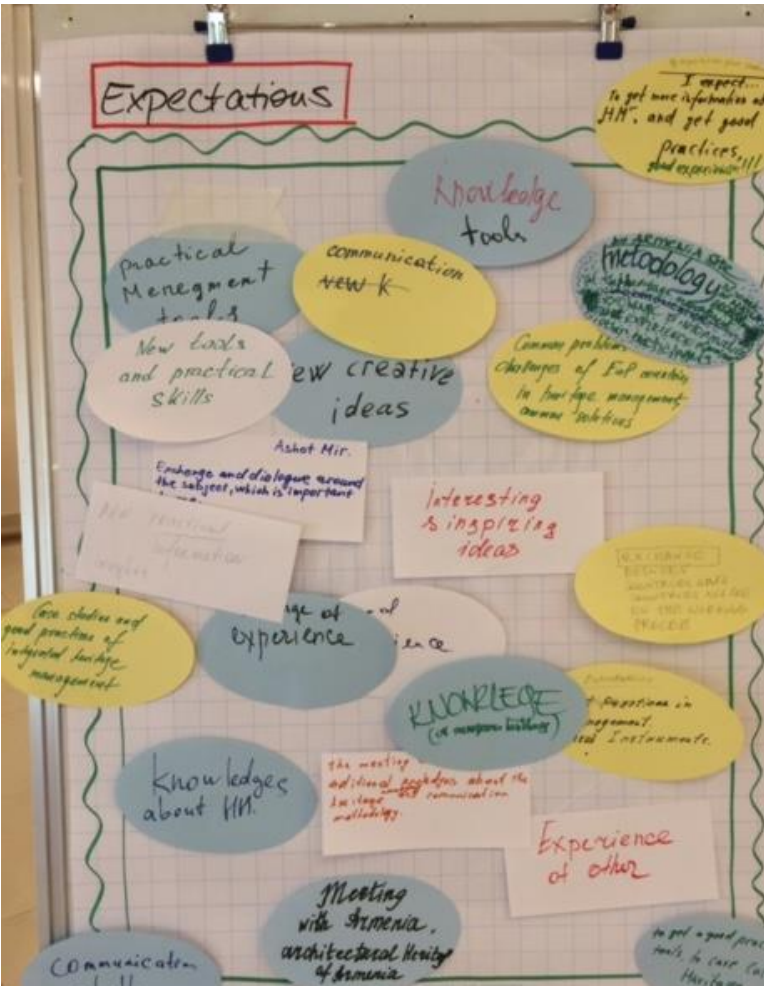 Expectations
I expect...
To get more information of
HM, and get good
practices,
good experience!!!
Knowledge
tools
practical
Menegment
tools
communication
new k
metodology
New tools
and practical
skills
ew creative
ideas
Common problems
challenges of EaP countries
in heritage management,
common solutions
Ashot Mir.
Exchange and dialogue around
the subject, which is important
Interesting
& inspiring
ideas
And practical
information
EXCHANGE
BETWEEN
COUNTRIES
COUNTRIES
IN THE WORKING
PROCESS
Case studies and
good practices of
integrated heritage
management
nge of
experience
ience
KNOWLEGE
(of european heritage)
t practices in
nagement.
Instruments.
Knowledges
about HM.
the meeting
aditional about the
heritage and communication
methodology.
Experience
of other
Meeting
with Armenia,
architectural Heritg
of Armenia
Communication
to get a good prac
tools to case
Heritage